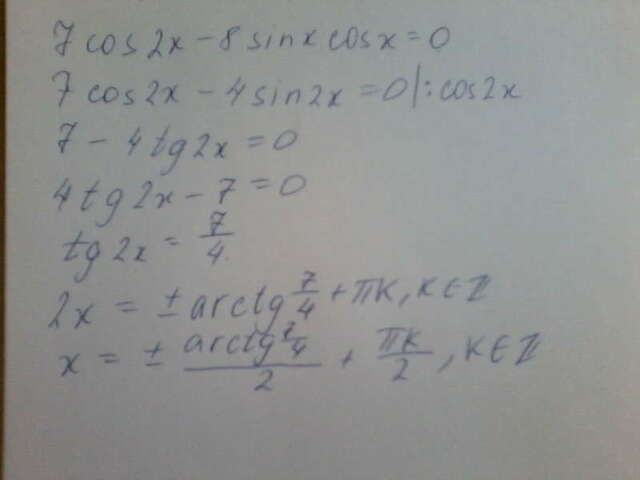 7 cos 2x - 8 sinx cosx = 0
7 cos2x - 4 sin2x = 0 |: cos2x
7 - 4 tg2x = 0
4 tg 2x - 7 = 0
tg 2x = 7/4
2x = ± arctg 7/4 + πK, K ∈ Z
x = ± arctg 7/4 / 2 + πK/2, K ∈ Z